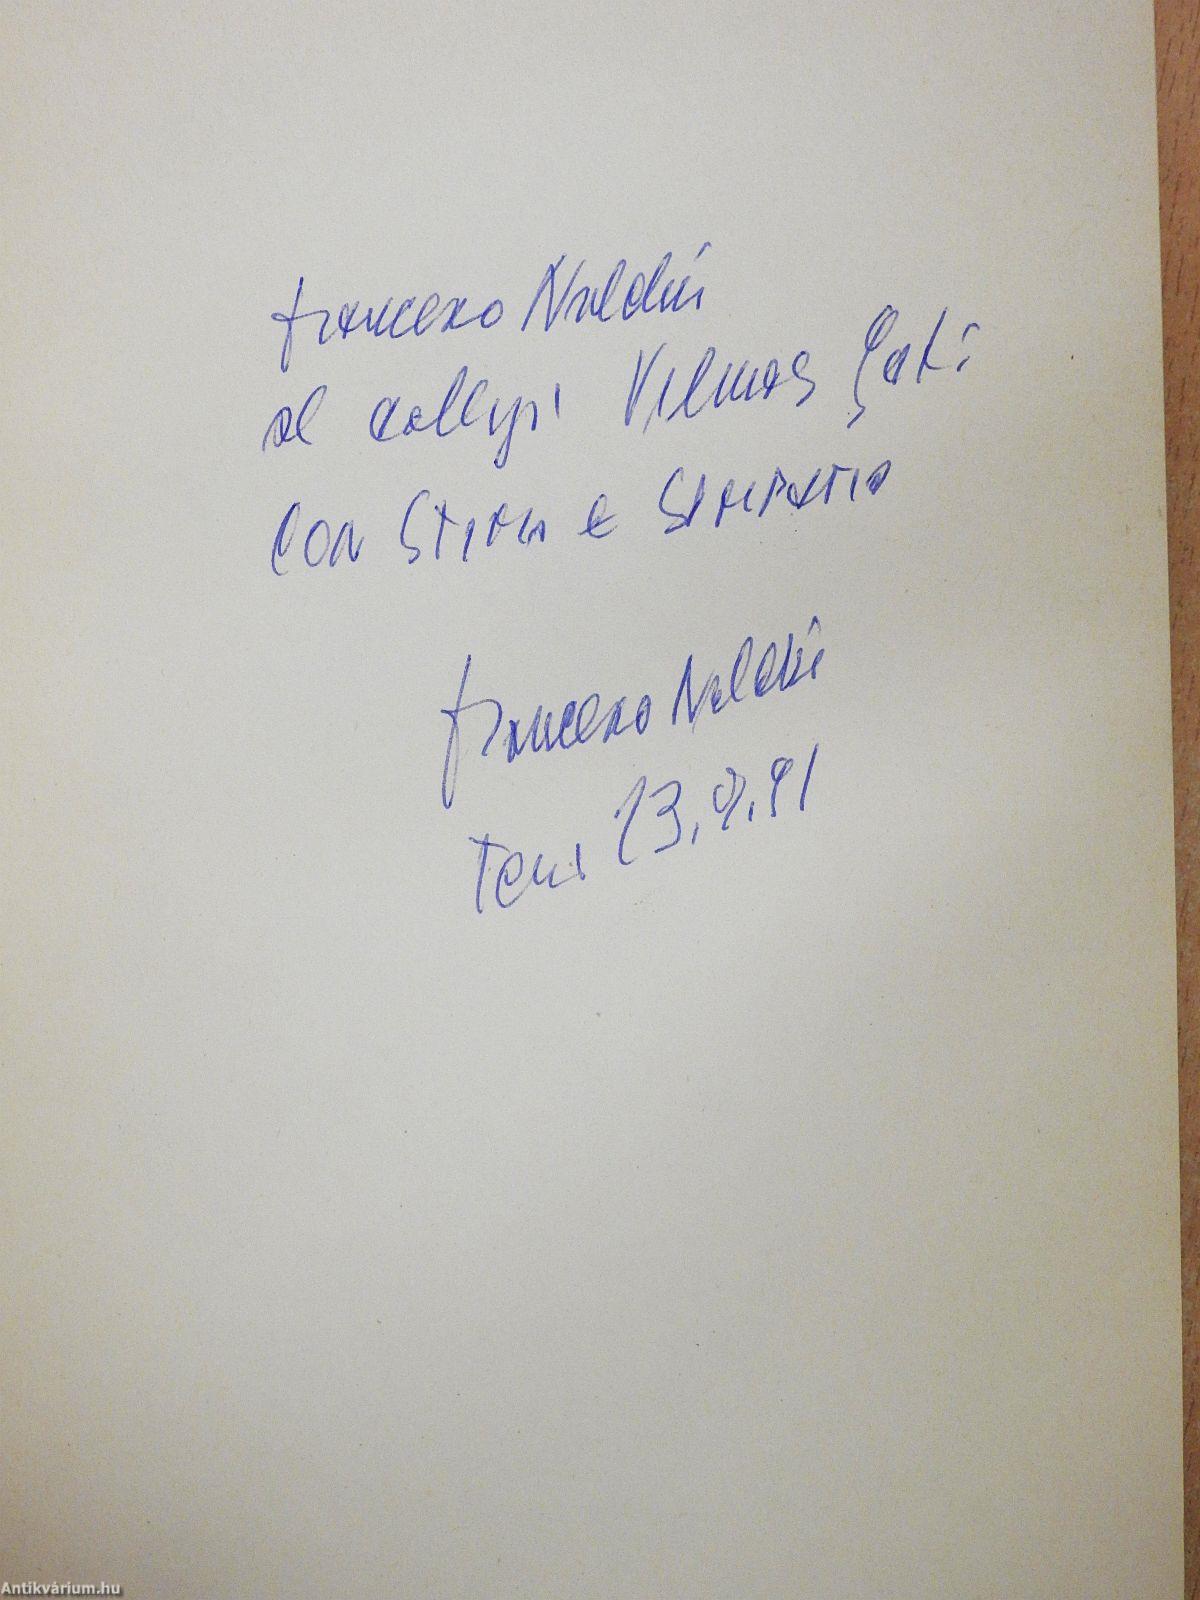 Francesco Naldini
al collega Vilmos Gati
con stima e simpatia
Francesco Naldini
23.9.91
Antikvárium.hu